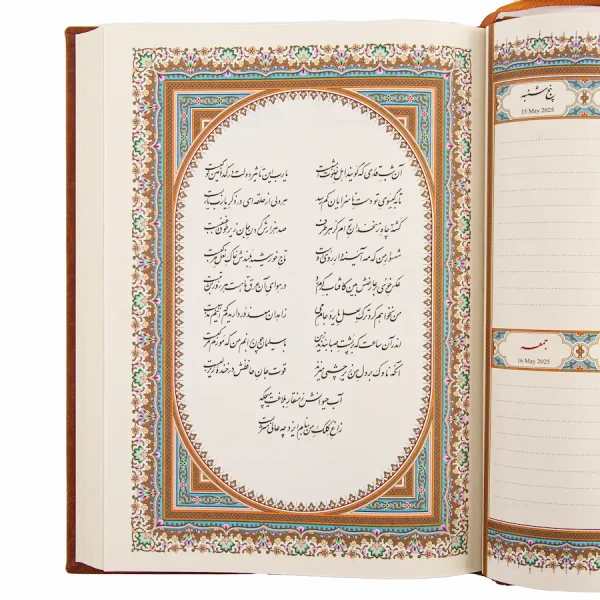 آن شب قدری که گویند اهل خلوت امشبست یارب این تاثیر دولت در کدامین کوکبست
تا به گیسوی تو دست ناسزایان کم رسد هر دلی از حلقه‌ای در ذکر یارب یاربست
کشتهٔ چاه زنخدان توام کز هر طرف صد هزارش گردن جان زیر طوق غبغبست
شهسوار من که مه آیینه دار روی اوست تاج خورشید بلندش خاک نعل مرکبست
عکس خوی بر عارضش بین کافتاب گرم رو در هوای آن عرق تا هست هر روزش تبست
من نخواهم کرد ترک لعل یار و جام می زاهدان معذور داریدم که اینم مذهبست
اندر آن ساعت که بر پشت صبا بندند زین با سلیمان چون برانم من که مورم مرکبست
آنکه ناوک بر دل من زیر چشمی میزند قوت جان حافظش در خنده زیر لبست
آب حیوانش ز منقار بلاغت میچکد
زاغ کلک من بنام ایزد چه عالی مشربست
پنج شنبه
15 May 2025
جمعه
16 May 2025